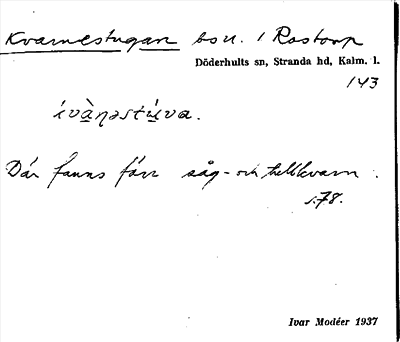 Kvarnestugan bs u. / Rostorp
Döderhults sn, Stranda hd, Kalm. l.
143
ɩvàṇəstúva.
Där fanns förr såg- och hellkvarn.
s. 78.
Ivar Modéer 1937